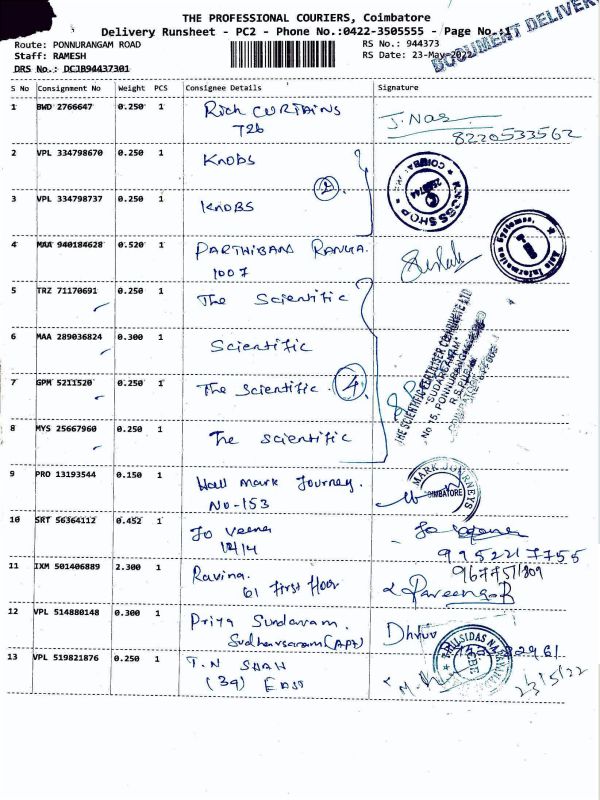 THE PROFESSIONAL COURIERS, Coimbatore
Delivery Runsheet - PC2 - Phone No.:0422-3505555 - Page No.:1
DOCUMENT DELIVER
Route: PONNURANGAM ROAD
RS No.: 944373
Staff: RAMESH
RS Date: 23-May-2022
DRS No.: DCJB94437301
S No Consignment No Weight PCS Consignee Details Signature
1 BWD 2766647 0.250 1 Rich CURTAINS
T2b
J. Nas
8220533562
2 VPL 334798670 0.250 1 KNOBS
3 VPL 334798737 0.250 1 KNOBS
2
KNOBS SHOP
4 MAA 940184628 0.520 1 PARTHIBAN RANGA
1007
Axle Information Systems
5 TRZ 71170691 0.250 1 The Scientific
6 MAA 289036824 0.300 1 Scientific
7 GPM 5211520 0.250 1 The Scientific
8 MYS 25667960 0.250 1 The Scientific
4
THE SCIENTIFIC FERTILISER CO PRIVATE LTD
No 15, PONNURANGAM
9 PRO 13193544 0.150 1 Hall mark Journey.
No-153
MARK JOURNEYS
COIMBATORE
10 SRT 56364112 0.452 1 Jo Veena
12/14
9952217755
11 IXM 501406889 2.300 1 Ravina.
61 First floor
Parveena.R
12 VPL 514880148 0.300 1 Priya Sundaram.
Dhruv
13 VPL 519821876 0.250 1 T.N SHAH
(39) EAST
CBE
23/5/22